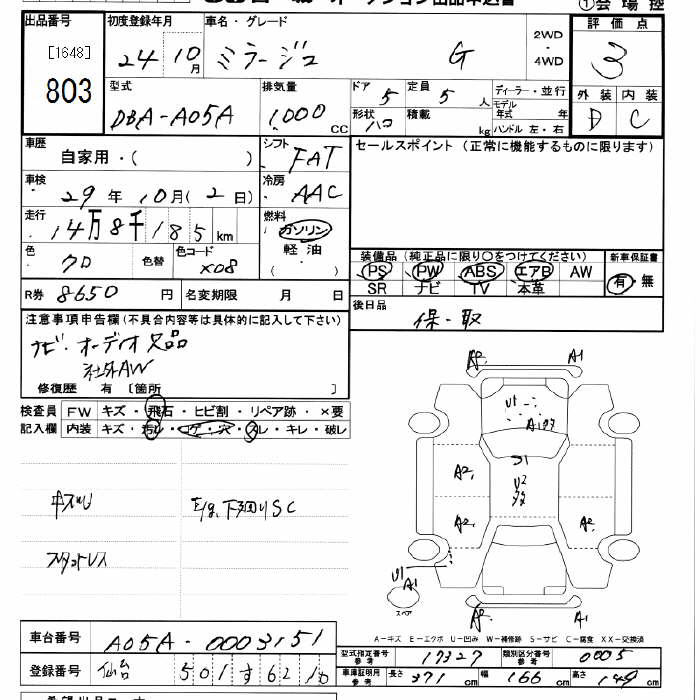 ①会場控
出品番号 初度登録年月 車名・グレード 2WD・4WD 評価点
[1648]
803 24 10月 ミラージュ G 3
型式 排気量 ドア 5 定員 5人 ディーラー・並行 外装 内装
DBA-A05A 1,000CC 形状 ハコ 積載 kg モデル年式 年 ハンドル 左・右 D C
車歴 自家用・( ) シフト FAT セールスポイント(正常に機能するものに限ります)
車検 29年10月(2日) 冷房 AAC
走行 14万8千185km 燃料 ガソリン
軽油
( )
色 クロ 色替 色コード X08
装備品(純正品に限り○をつけてください) 新車保証書
PS PW ABS エアB AW 有・無
SR ナビ TV 本革
R券 8650円 名変期限 月 日 後日品
保・取
注意事項申告欄(不具合内容等は具体的に記入して下さい)
ナビ・オーディオ欠品
社外AW
修復歴 有〔箇所 〕
検査員 FW キズ・飛石・ヒビ割・リペア跡・×要
記入欄 内装 キズ・汚れ・コゲ・穴・スレ・キレ・破レ
A1
U1
A2
A2
A2
U2
キズUJ
下回りSC
U1
A1
スペア
A1
A-キズ E-エクボ U-凹み W-補修跡 S-サビ C-腐食 XX-交換済
車台番号 A05A-0003151
型式指定番号 参考 17327 類別区分番号 参考 0005
登録番号 仙台 501す6210
車庫証明用 参考 長さ 371cm 幅 166cm 高さ 149cm